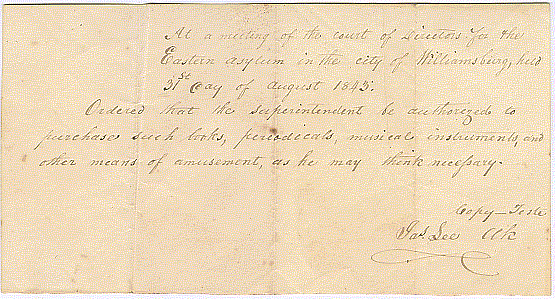 At a meeting of the court of Directors for the
Eastern asylum in the city of Williamsburg, held
31st day of August 1843.
Ordered that the superintendent be authorized to
purchase such books, periodicals, musical instruments, and
other means of amusement, as he may think necessary.
Copy—Teste
Jas. Lee Clk